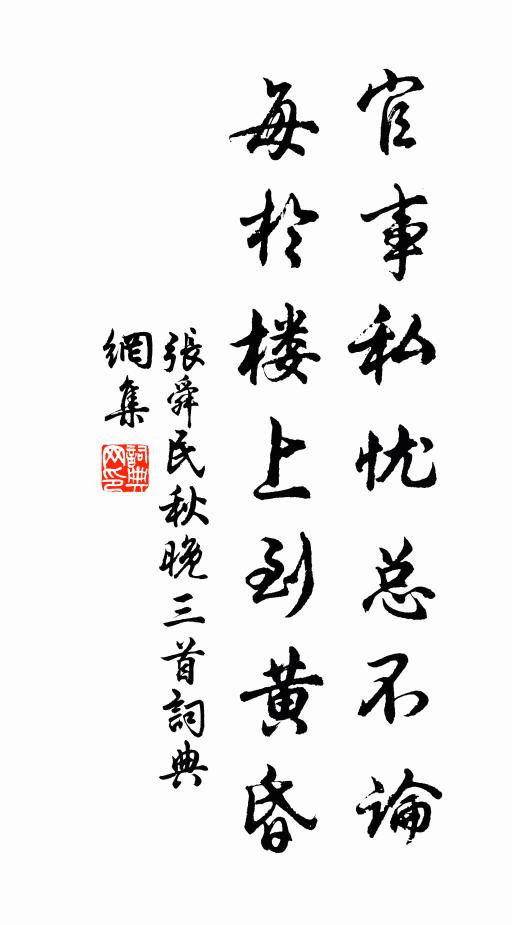 官事私忧总不論
每於楼上到黄昏
張舜民秋晚三首詞典
網集
詞典
网印